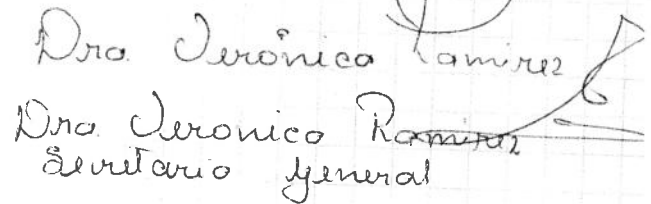 Dra. Verónica Ramirez
Dra Veronica Ramirez
Secretario General